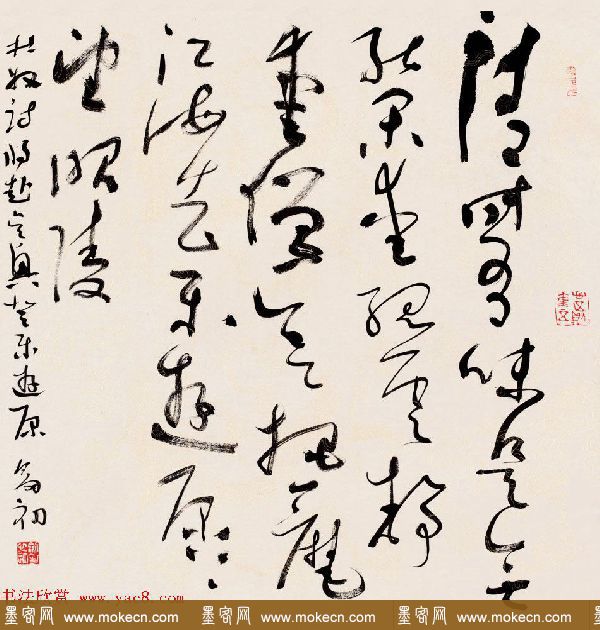 清時有味是无
能閑愛孤雲靜
愛僧欲把一麾
江海去樂遊原上
望昭陵
杜牧詩將赴吳興登樂遊原
书法欣赏 www.yac8.com
墨客网 www.mokecn.com 墨客网 www.mokecn.com 墨客网 www.mokecn.com